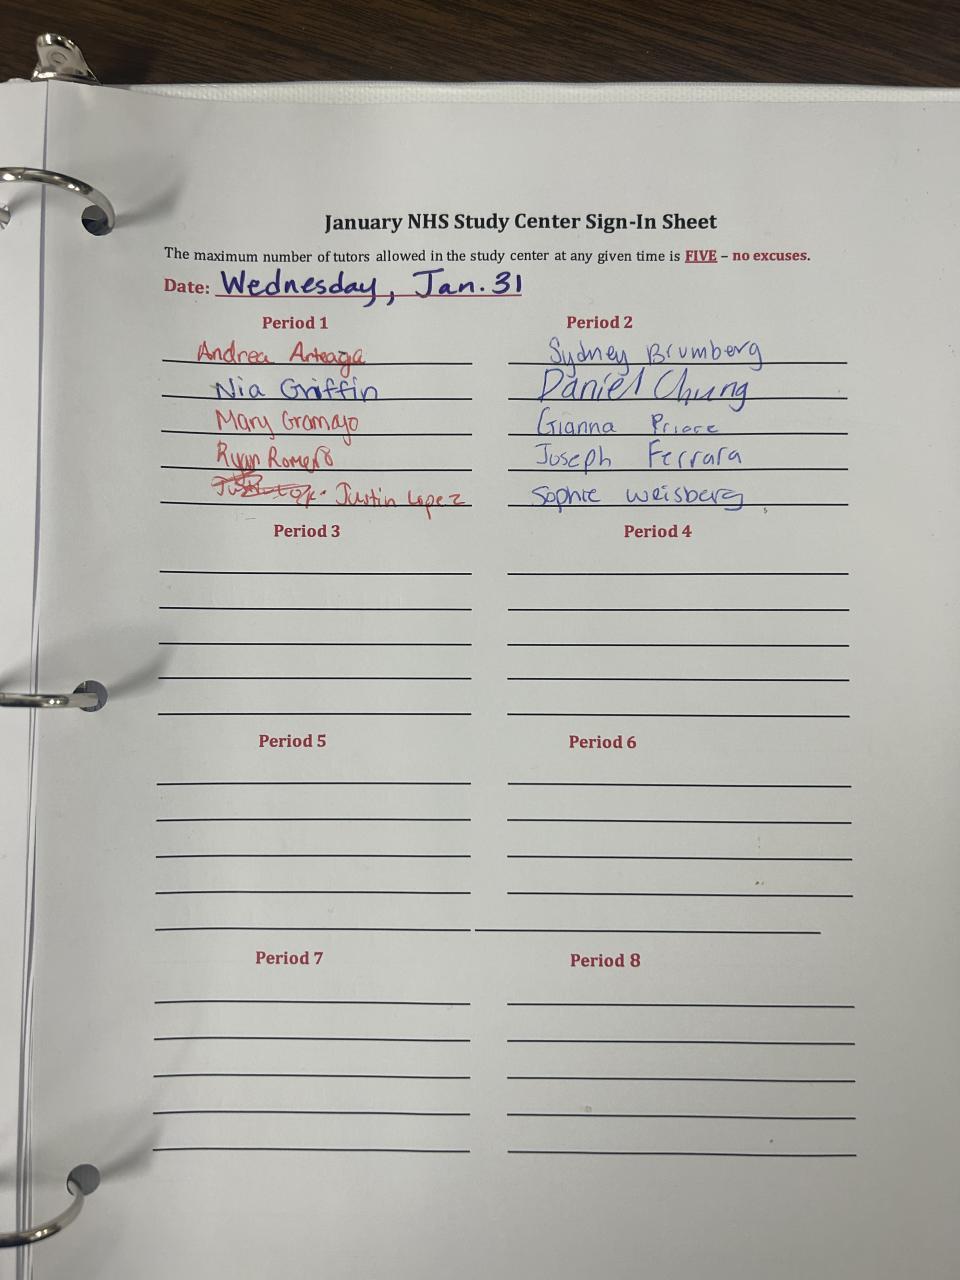 January NHS Study Center Sign-In Sheet
The maximum number of tutors allowed in the study center at any given time is FIVE – no excuses.
Date: Wednesday, Jan. 31
Period 1
Andrea Arteaga
Nia Griffin
Mary Gramajo
Ryan Romero
Justin Lopez
Period 2
Sydney Brumberg
Daniel Chung
Gianna Priore
Joseph Ferrara
Sophie Weisberg
Period 3
Period 4
Period 5
Period 6
Period 7
Period 8